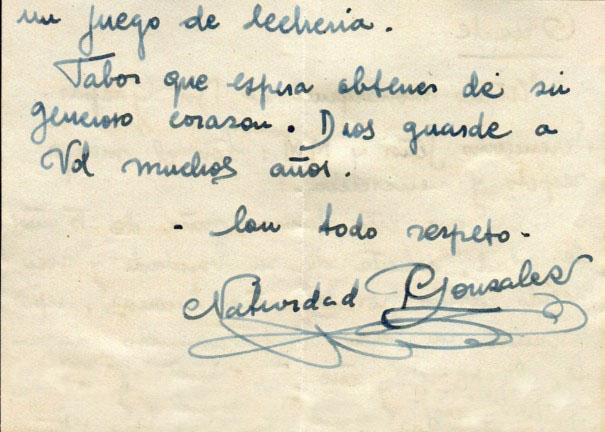 un juego de lecheria.
Tabor que espera obtener de su
generoso corazon. Dios guarde a
Vd muchos años.
- Con todo respeto -
Natividad Gonzalez